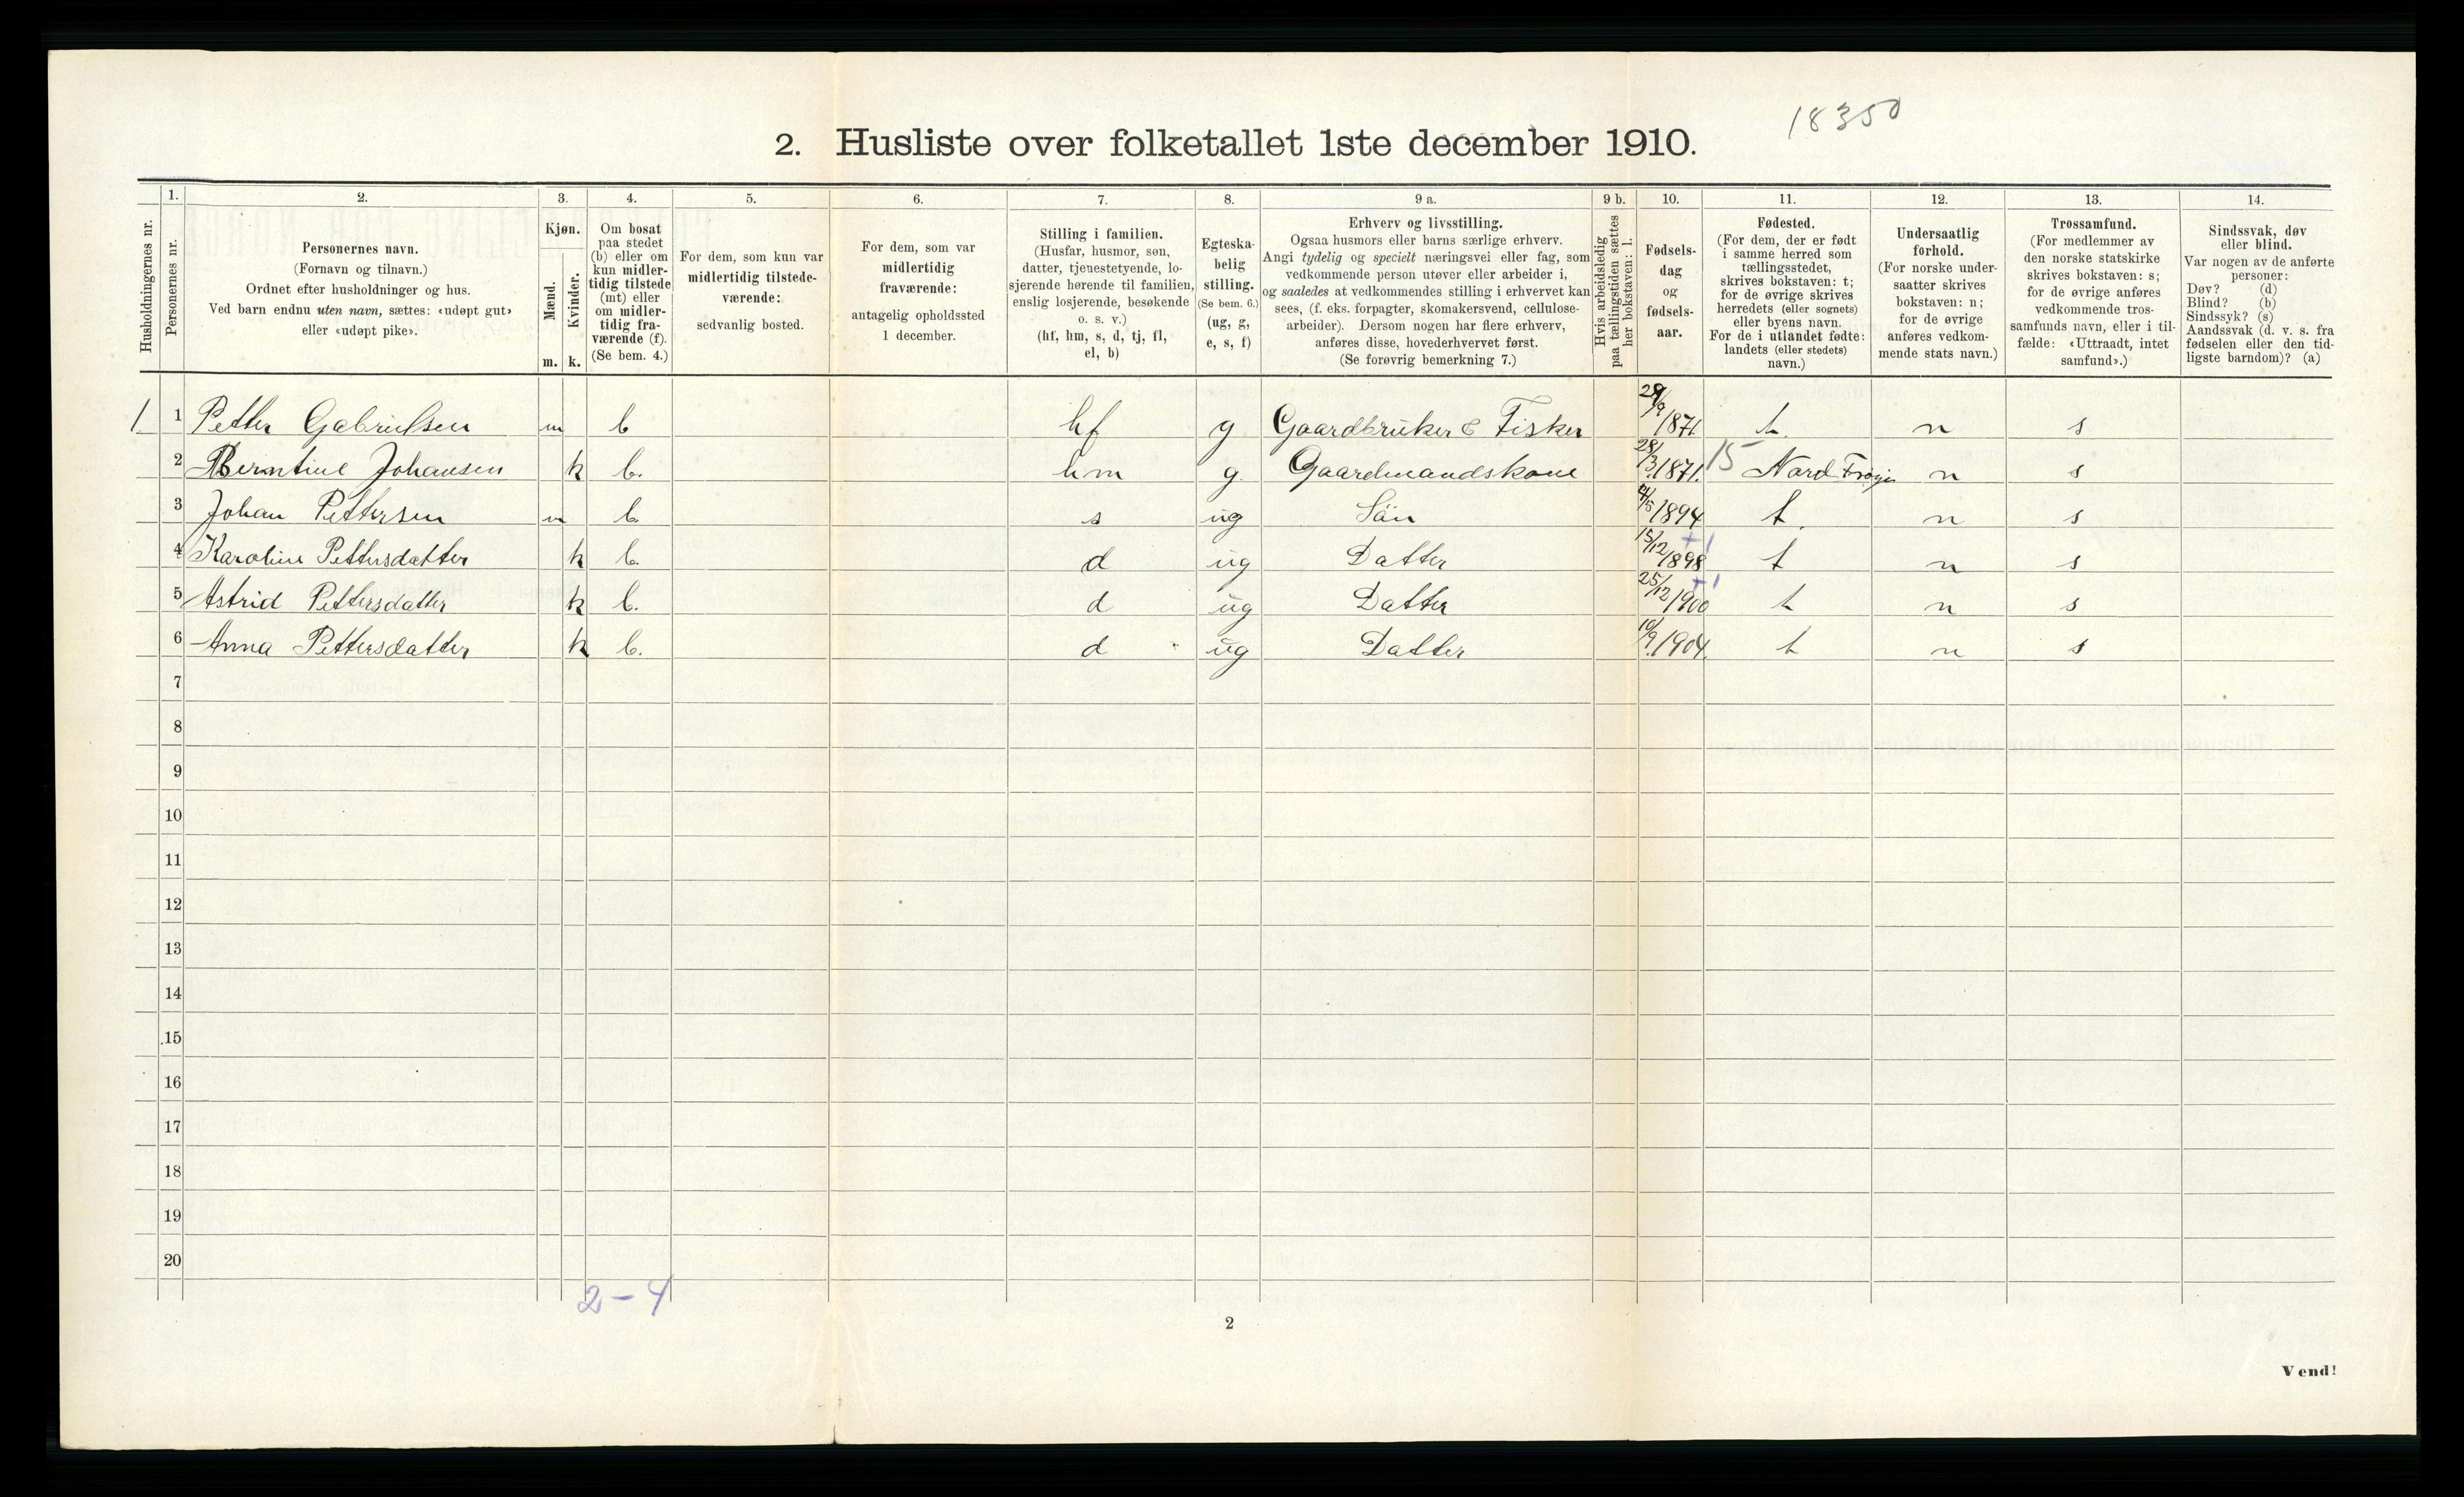 18350
2. Husliste over folketallet 1ste december 1910.
Husholdningernes nr.
1.
Personernes nr.
2.
Personernes navn.
(Fornavn og tilnavn.)
Ordnet efter husholdninger og hus.
Ved barn endnu uten navn, sættes: «udøpt gut»
eller «udøpt pike».
3.
Kjøn.
Mænd.
Kvinder.
m. k.
4.
Om bosat
paa stedet
(b) eller om
kun midler-
tidig tilstede
(mt) eller
om midler-
tidig fra-
værende (f).
(Se bem. 4.)
5.
For dem, som kun var
midlertidig tilstede-
værende:
sedvanlig bosted.
6.
For dem, som var
midlertidig
fraværende:
antagelig opholdssted
1 december.
7.
Stilling i familien.
(Husfar, husmor, søn,
datter, tjenestetyende, lo-
sjerende hørende til familien,
enslig losjerende, besøkende
o. s. v.)
(hf, hm, s, d, tj, fl,
el, b)
8.
Egteska-
belig
stilling.
(Se bem. 6.)
(ug, g,
e, s, f)
9 a.
Erhverv og livsstilling.
Ogsaa husmors eller barns særlige erhverv.
Angi tydelig og specielt næringsvei eller fag, som
vedkommende person utøver eller arbeider i,
og saaledes at vedkommendes stilling i erhvervet kan
sees, (f. eks. forpagter, skomakersvend, cellulose-
arbeider). Dersom nogen har flere erhverv,
anføres disse, hovederhvervet først.
(Se forøvrig bemerkning 7.)
9 b.
Hvis arbeidsledig
paa tællingstiden sættes
her bokstaven: l.
10.
Fødsels-
dag
og
fødsels-
aar.
11.
Fødested.
(For dem, der er født
i samme herred som
tællingsstedet,
skrives bokstaven: t;
for de øvrige skrives
herredets (eller sognets)
eller byens navn.
For de i utlandet fødte:
landets (eller stedets)
navn.)
12.
Undersaatlig
forhold.
(For norske under-
saatter skrives
bokstaven: n;
for de øvrige
anføres vedkom-
mende stats navn.)
13.
Trossamfund.
(For medlemmer av
den norske statskirke
skrives bokstaven: s;
for de øvrige anføres
vedkommende tros-
samfunds navn, eller i til-
fælde: «Uttraadt, intet
samfund».)
14.
Sindssvak, døv
eller blind.
Var nogen av de anførte
personer:
Døv? (d)
Blind? (b)
Sindssyk? (s)
Aandssvak (d. v. s. fra
fødselen eller den tid-
ligste barndom)? (a)
1 1 Petter Gabrielsen m b hf g Gaardbruker & Fisker 29/9 1871. t. n s
2 Berntine Johansen k b. hm g. Gaardmandskone 28/3 1871. 15 Nord Frøya n s
3 Johan Pettersen m b s ug Sön 4/5 1894 t. n s
4 Karoline Pettersdatter k b. d ug Datter 15/12 1898 +1 t n s
5 Astrid Pettersdatter k b. d ug Datter 25/12 1900 +1 t n s
6 Anna Pettersdatter k b. d ug Datter 10/9 1904. t n s
7
8
9
10
11
12
13
14
15
16
17
18
19
20
2-4
2
Vend!